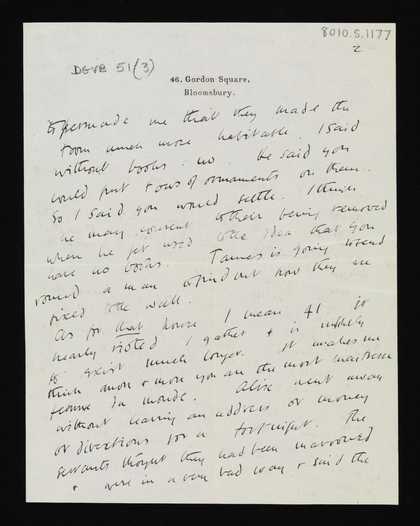 8010.5.1177
2
DGVB 51(3)
46, Gordon Square,
Bloomsbury.
to persuade me that they made the
room much more habitable. I said
without books: no. He said you
would put rows of ornaments on them.
So I said you would settle. I think
he may consent to their being removed
when he gets used to the idea that you
have no books. James is going to send
round a man to find out how they are
fixed to the wall.
As for that house, I mean 41 it
nearly rioted I gather & is unlikely
to exist much longer. It makes me
think more & more you are the most maitresse
femme du monde. Alix went away
without leaving an address or money
or directions for a fortnight. The
servants thought they had been marooned
& were in a very bad way & said the